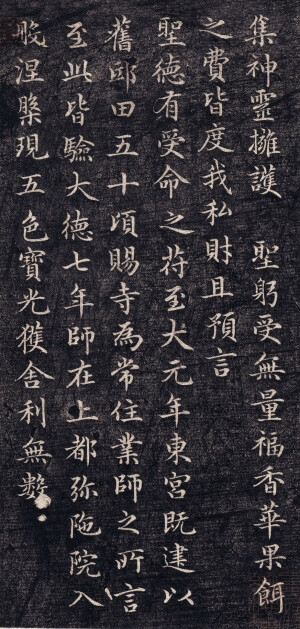 集神靈擁護　聖躬受無量福香華果餌
之費皆度我私財且預言
聖德有受命之符至大元年東宮既建以
舊邸田五十頃賜寺為常住業師之所言
至此皆驗大德七年師在上都弥陁院入
般涅槃現五色寶光獲舍利無數